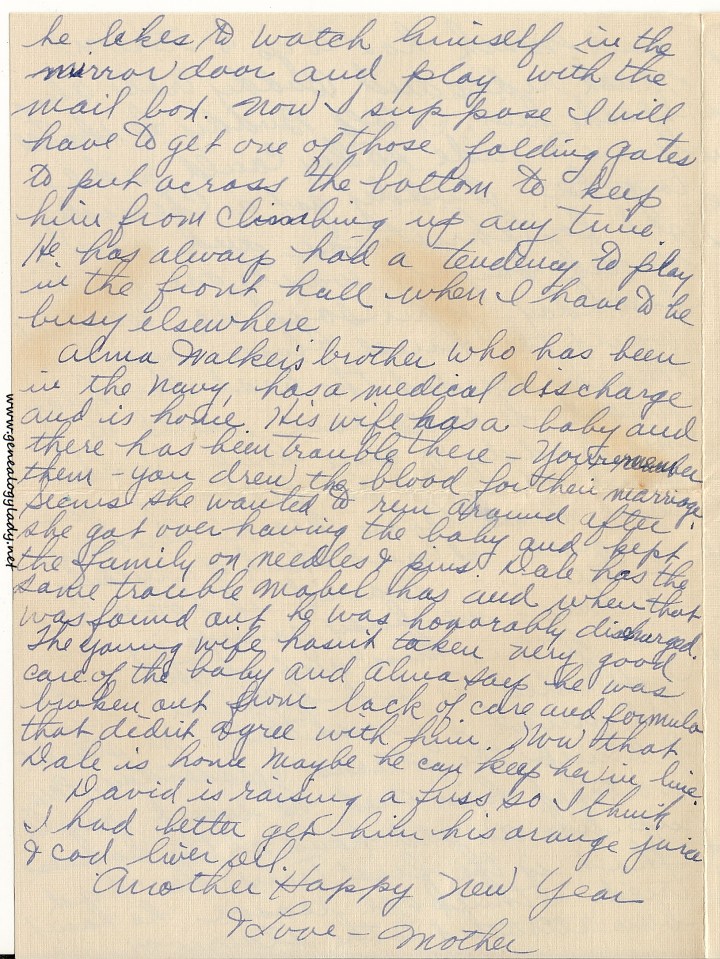 he likes to watch himself in the
mirror door and play with the
mail box. Now I suppose I will
have to get one of those folding gates
to put across the bottom to keep
him from climbing up any time
He has always had a tendency to play
in the front hall when I have to be
busy elsewhere
Alma Walker's brother who has been
in the Navy, has a medical discharge
and is home. His wife has a baby and
there has been trouble there - You remember
them - you drew the blood for their marriage.
Seems she wanted to run around after
she got over having the baby and kept
the family on needles & pins. Dale has the
same trouble Mabel has and when that
was found out he was honorably discharged.
The young wife hasn't taken very good
care of the baby and Alma says he was
broken out from lack of care and formula
that didn't agree with him. Now that
Dale is home maybe he can keep her in line.
David is raising a fuss so I think
I had better get him his orange juice
& cod liver oil.
Another Happy New Year
& Love - Mother
www.genealogylady.net